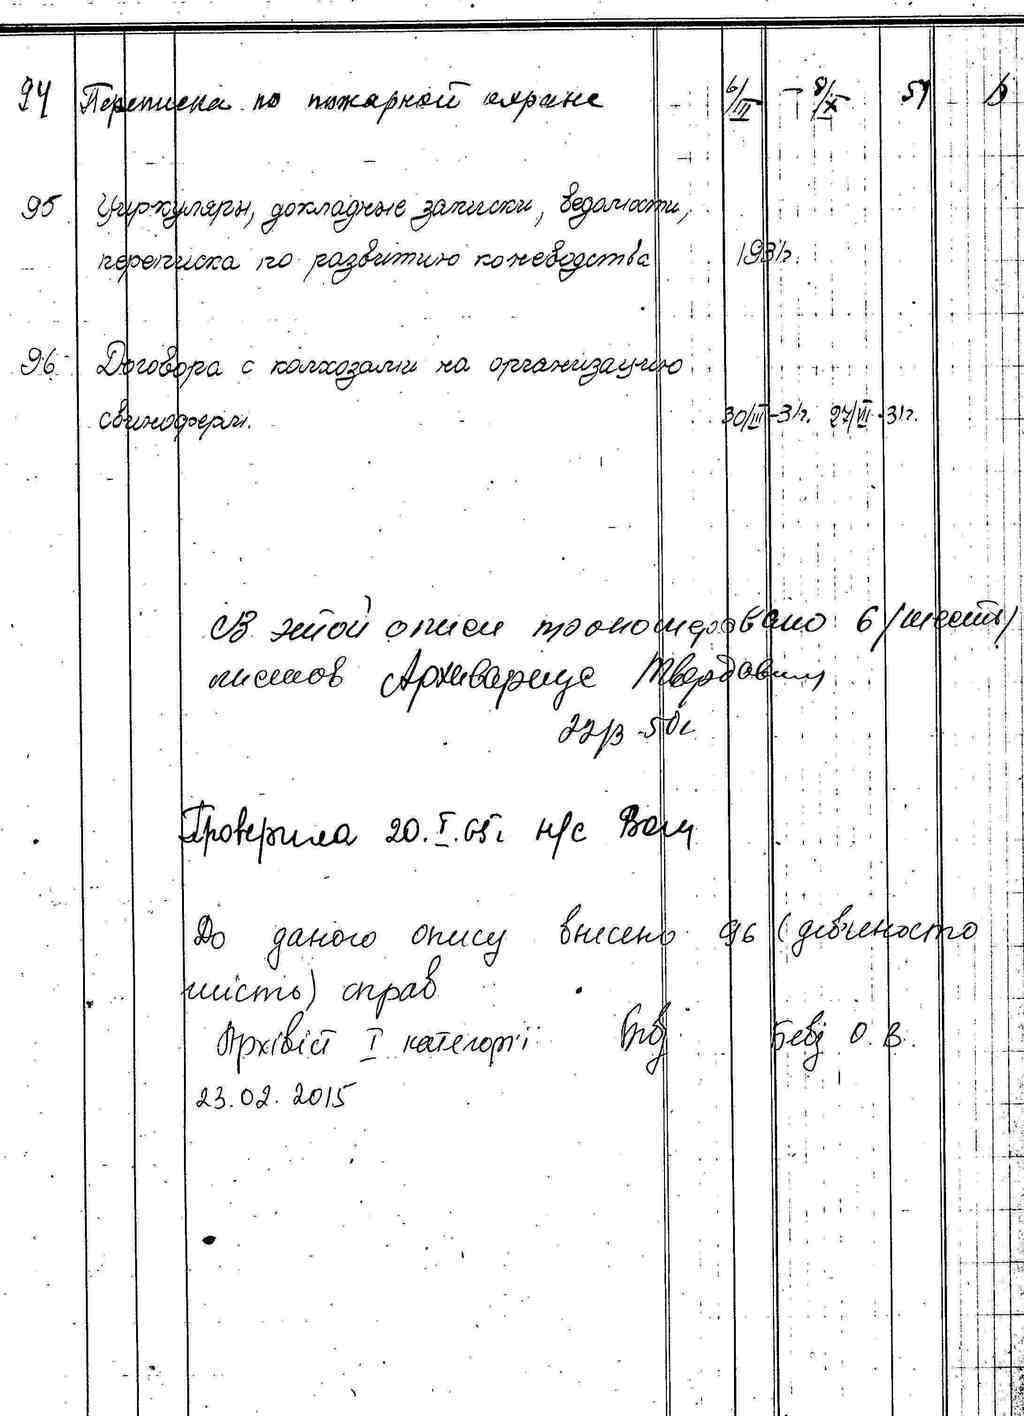 94 Переписка по пожарной охране 6/III – 8/X 51 б
95 Циркуляры, докладные записки, ведомости,
переписка по развитию коневодства 1931г.
96 Договора с колхозами на организацию
свиноферм. 30/III-31г. 27/VII-31г.
В этой описи пронумеровано 6 /шесть/
листов Архивариус
22/3-50г.
Проверила 20.I.65г н/с
До даного опису внесено 96 (дев'яносто
шість) справ
Архівіст I категорії Бевз О.В.
23.02.2015